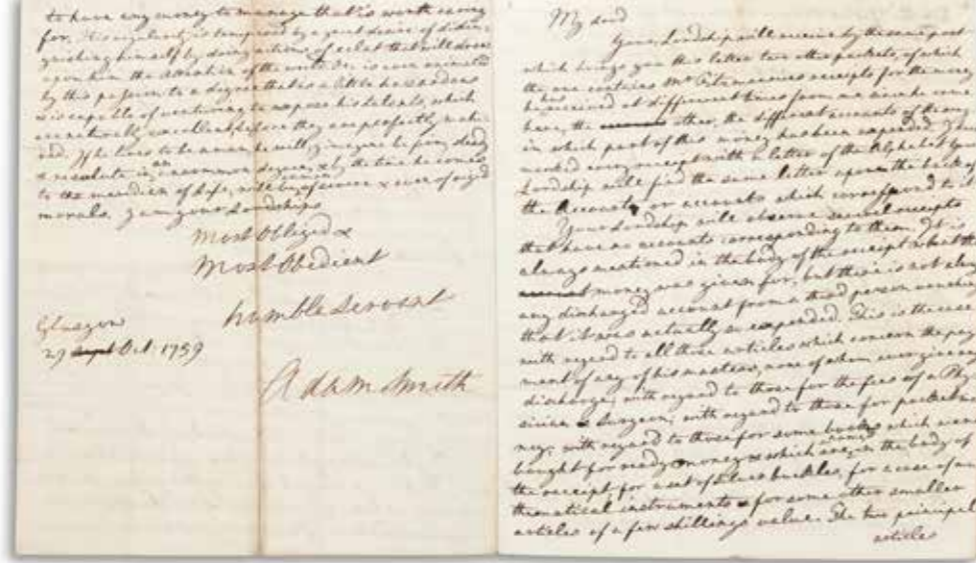 to have any money to manage that is worth caring
for. His is tempered by a great desire of distin
guishing himself by doing actions of eclat that will draw
upon him the attention of the world. He is even animated
by this passion to a degree that is a little hazardous
& is capable of venturing to expose his talents, which
are naturally excellent, before they are perfectly matu
red. If he lives to be a man, he will, I imagine be firm, steady
& resolute in an uncommon degree, & by the time he comes
to the meridian of life, will be a man of severe & even of rigid
morals. I am your Lordships
Most Obliged &
Most Obedient
humble Servant
Glasgow
29 Oct. 1759
Adam Smith
My Lord
Your Lordship will receive by the same post
which brings you this letter two other packets, of which
the one contains Mr Fitzmaurices receipts for the money
he has received at different times from me since he came
here, the other, the different accounts of the
in which part of this money has been expended. I have
marked every receipt with a letter of the Alphabet. Your
Lordship will find the same letter upon the back of
the Accounts or accounts which correspond to it.
Your Lordship will observe several receipts
that have no accounts corresponding to them. It is
always mentioned in the body of the receipt what the
money was given for, but there is not always
any discharged account from a third person
that it was actually so expended. This is the case
with regard to all those articles which concern the pay
ment of any of his masters, none of whom ever give a
discharge; with regard to those for the fees of a Phy
sician & Surgeon; with regard to those for pocket mo
ney; with regard to those for some books which were
bought for ready money & which are named in the body of
the receipt, for a set of silver buckles, for a case of ma
thematical instruments & for some other smaller
articles of a few shillings value. The two principal
articles